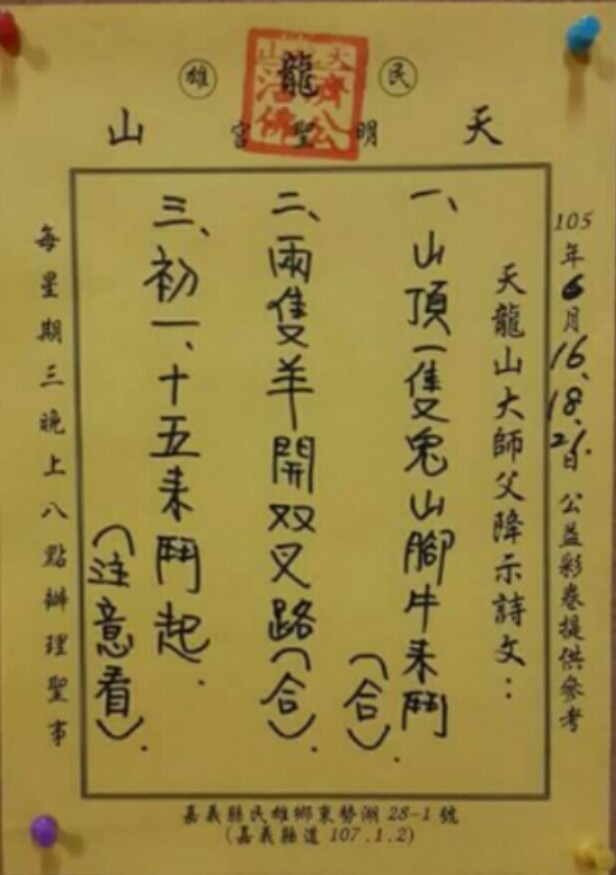 民雄
天龍山
明聖宮
濟公
活佛
105年6月16.18.21.日 公益彩卷提供參考
天龍山大師父降示詩文：
一、山頂一隻兔山腳牛来鬥
（合）.
二、兩隻羊開双叉路（合）.
三、初一、十五来鬥起.
（注意看）.
每星期三晚上八點辦理聖事
嘉義縣民雄鄉東勢湖 28-1 號
(嘉義縣道 107.1.2)